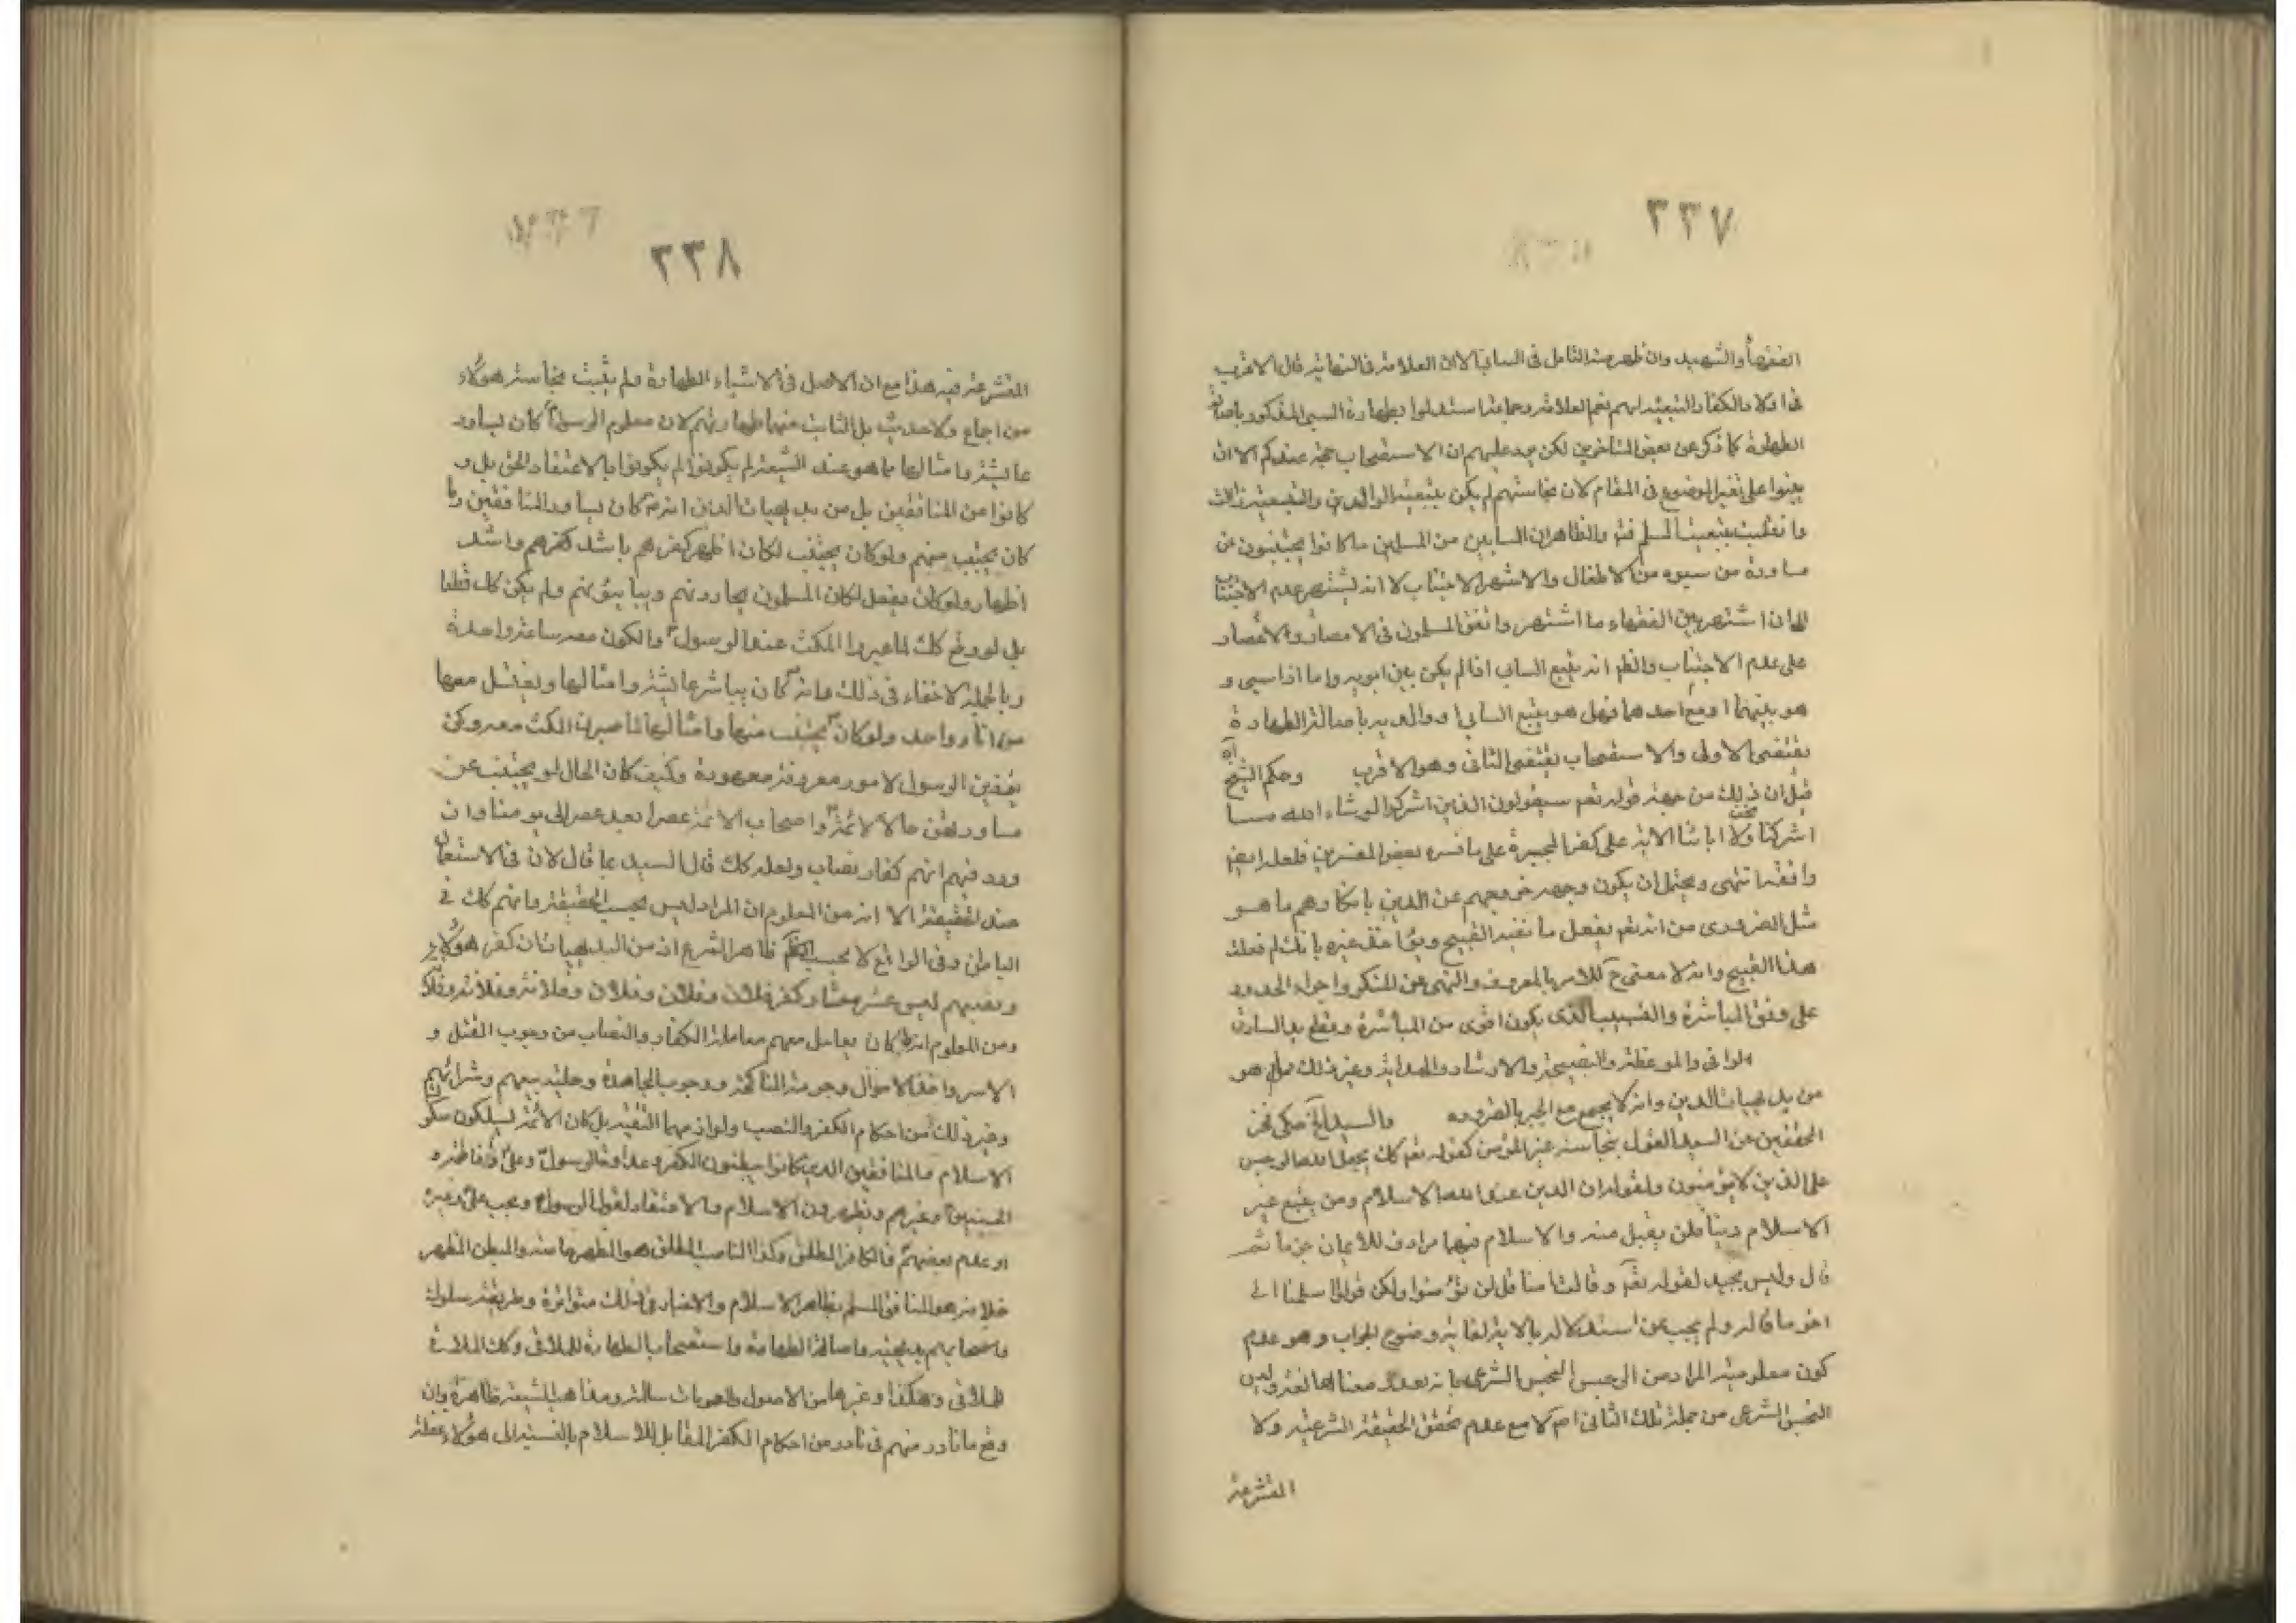 ٣٣٧
الفقهاء والشهيد وان ظهر منه التامل فى السابى الا ان العلامة فى النهاية قال الاقرب
فى اولاد الكفار التبعية لهم نعم العلامة وجماعة استدلوا بطهارة السبى المذكور باصالة
الطهارة كما ذكر عن بعض المتاخرين لكن يرد عليهم ان الاستصحاب حجة عندكم الا ان
يبنوا على تغير الموضوع فى المقام لان نجاستهم لم يكن بتبعية الوالدين والتبعية زالت
وانقلبت بتبعية المسلم فتم والظاهر ان السابين من المسلمين ما كانوا يجتنبون عن
مساورة من سبوه من الاطفال والا لاشتهر الاجتناب لا انه ليشتهر عدم الاجتناب
الى ان اشتهر بين الفقهاء ما اشتهر واتفق المسلمون فى الامصار والاعصار
على عدم الاجتناب والظ انه يتبع السابى اذا لم يكن بين ابويه واما اذا سبى و
هو بينهما او مع احدهما فهل هو يتبع السابى او والديه باصالة الطهارة
يقتضى الاولى والاستصحاب يقتضى الثانى وهو الاقرب وحكم الشيخ آه
قيل ان ذلك من جهة قوله تعم سيقولون الذين اشركوا لو شاء الله مسا
اشركنا نحن ولا اباؤنا الاية على كفر المجبرة على ما فسره بعض المفسرين فلعله ايض
وافقه انتهى ويحتمل ان يكون وجهه خروجهم عن الدين بانكارهم ما هو
مثل الضرورى من انه تعم يفعل ما نفيه القبيح ويؤاخذ غيره بانك لم فعلت
هذا القبيح وانه لا معنى ح للامر بالمعروف والنهى عن المنكر واجراء الحدود
على وفق المباشرة والتسبيب الذى يكون اقوى من المباشرة وقطع يد السارق
الوافى والموعظة والنصيحة والارشاد والهداية وغير ذلك مما هو
من بديهيات الدين وانه لا يجمع مع الجبر بالضرورة والسيد آه حكى فخر
المحققين عن السيد القول بنجاسة غير المؤمن كقوله تعم كك يجعل الله الرجس
على الذين لا يؤمنون ولقوله ان الدين عند الله الاسلام ومن يبتغ غير
الاسلام دينا فلن يقبل منه والاسلام فيهما مرادف للايمان عرفا ثم
قال وليس بجيد لقوله تعم وقالت امنا قل لن تؤمنوا ولكن قولوا سلمنا الى
اخر ما قاله ولم يجب عن استدلاله بالاية لغاية وضوح الجواب وهو عدم
كون معلومية المراد من الرجس النجس الشرعى بانه تعدد معناه لغة وليس
النجس الشرعى من جملة تلك المعانى اصلا مع عدم تحقق الحقيقة الشرعية ولا
المتشرعة
٣٣٨
المتشرعة فيه هذا مع ان الاصل فى الاشياء الطهارة ولم يثبت نجاسة هؤلاء
من اجماع ولا حديث بل الثابت منهما طهارتهم لان معلوم الرسول كان يساور
عايشة وامثالها مما هو عند الشيعة لم يكونوا لم يكونوا بالاعتقاد الحق بل و
كانوا من المنافقين بل من بديهيات الدين انه كان يساور المنافقين وما
كان يجتنب منهم ولو كان يجتنب لكان اظهر كفرهم باشد كفرهم واشد
اظهار ولو كان يفعل لكان المسلمون يحاربونهم ويباينونهم ولم يكن كك قطعا
بل لو وقع كك لما عبروا المكث عند الرسول والكون معه ساعة واحدة
وبالجملة لا خفاء فى ذلك وانه كان يباشر عايشة وامثالها ويغتسل معها
من اناء واحد ولو كان يجتنب منها وامثالها لما صبرن المكث معه وكن
يخفين الرسول لامور معروفة معهودة وكيف كان الحال لو يجتنب عن
مساورتهن حالا لائمة واصحاب الائمة عصرا بعد عصر الى يومنا وان
ورد فيهم انهم كفار نصاب ولعله كك قال السيد بما قال لان فى الاستعمال
عنده الحقيقة الا انه من المعلوم ان المراد ليس بحسب الحقيقة وانهم كك فى
الباطن وفى الواقع لا بحسب الحكم ظاهر الشرع اذ من البديهيات ان كفر هؤلاء
ونصبهم ليس عشر معشار كفر فلان وفلان وفلان وفلانة وفلانة وفلان
ومن المعلوم انه ما كان يعامل معهم معاملة الكفار والنصاب من وجوب القتل و
الاسر واخذ الاموال وحرمة المناكحة ووجوب المجاهدة وحلية بيعهم وشرائهم
وغير ذلك من احكام الكفر والنصب ولوازمهما التقية بل كان الائمة يسلكون سلوك
الاسلام مع المنافقين الذين كانوا يبطنون الكفر وعداوة الرسول وعلى وفاطمة و
الحسنين وغيرهم ويظهرون الاسلام والاعتقاد لقول الرسول وبحب على وغيره
او عدم بعضهم فالكافر المطلق وكذا الناصب المطلق هو المظهر ما منه والمبطن المظهر
خلافه هو المنافق المسلم بظاهر الاسلام والاخبار فى ذلك متواترة وطريقة سلوك
واصحابهم بديهية واصالة الطهارة واستصحاب الطهارة للملاقى وكك الملاقى
للملاقى وهكذا وغيرها من الاصول والعمومات سالمة ومذاهب الشيعة ظاهرة وان
وقع ما نادر منهم فى نادر من احكام الكفر المقابل للاسلام بالنسبة الى هؤلاء غفلة